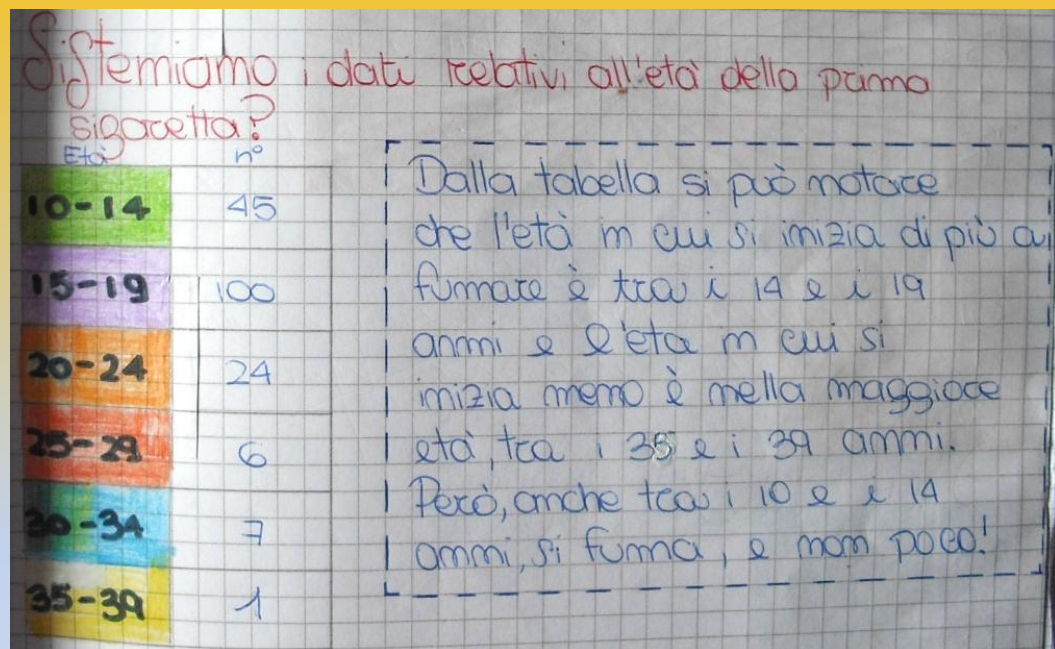 Sistemiamo i dati relativi all'età della prima
sigaretta?
Età n°
10-14 45
15-19 100
20-24 24
25-29 6
30-34 7
35-39 1
Dalla tabella si può notare
che l'età in cui si inizia di più a
fummare è tra i 14 e i 19
anni e l'eta in cui si
inizia meno è nella maggiore
età, tra i 35 e i 39 anni.
Però, anche tra i 10 e i 14
anni, si fumma, e non poco!